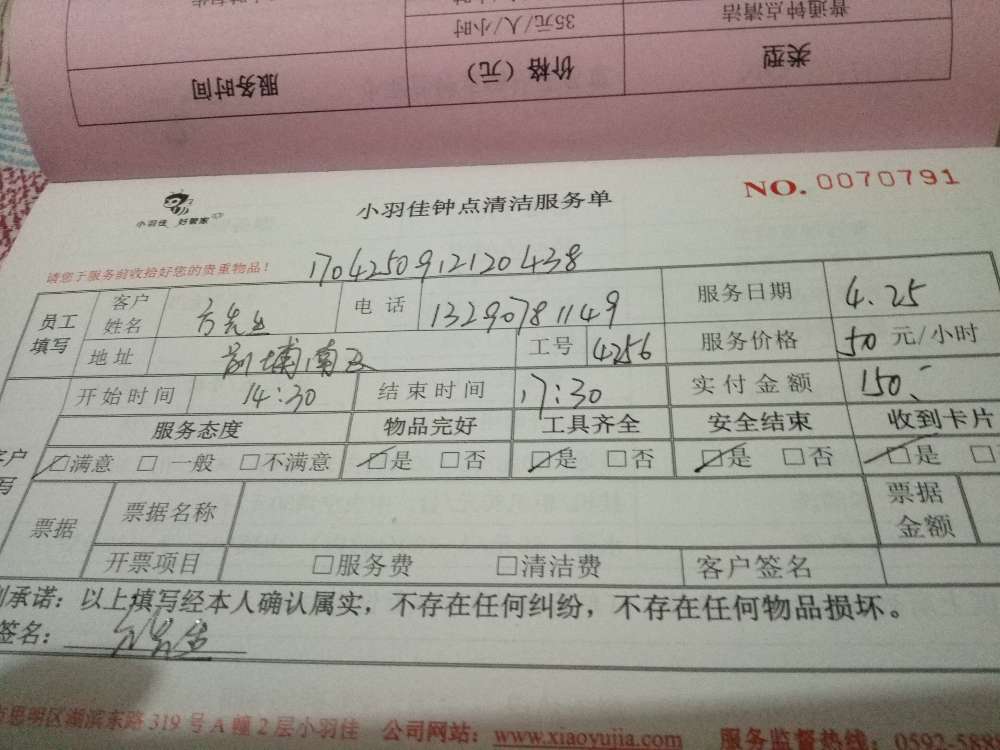 普通钟点清洁
35元/人/小时
类型
价格（元）
服务时间
NO. 0070791
小羽佳 好管家
小羽佳钟点清洁服务单
请您于服务前收拾好您的贵重物品！
1704250912120438
员工填写
客户姓名
方先生
电话
13290781149
服务日期
4.25
地址
前埔南区
工号
4256
服务价格
50 元/小时
开始时间
14:30
结束时间
17:30
实付金额
150
服务态度 物品完好 工具齐全 安全结束 收到卡片
□满意 □一般 □不满意 □是 □否 □是 □否 □是 □否 □是
票据
票据名称
票据金额
开票项目
□服务费 □清洁费
客户签名
承诺：以上填写经本人确认属实，不存在任何纠纷，不存在任何物品损坏。
签名：
思明区湖滨东路319号A幢2层小羽佳 公司网站：www.xiaoyujia.com 服务监督热线：0592-588